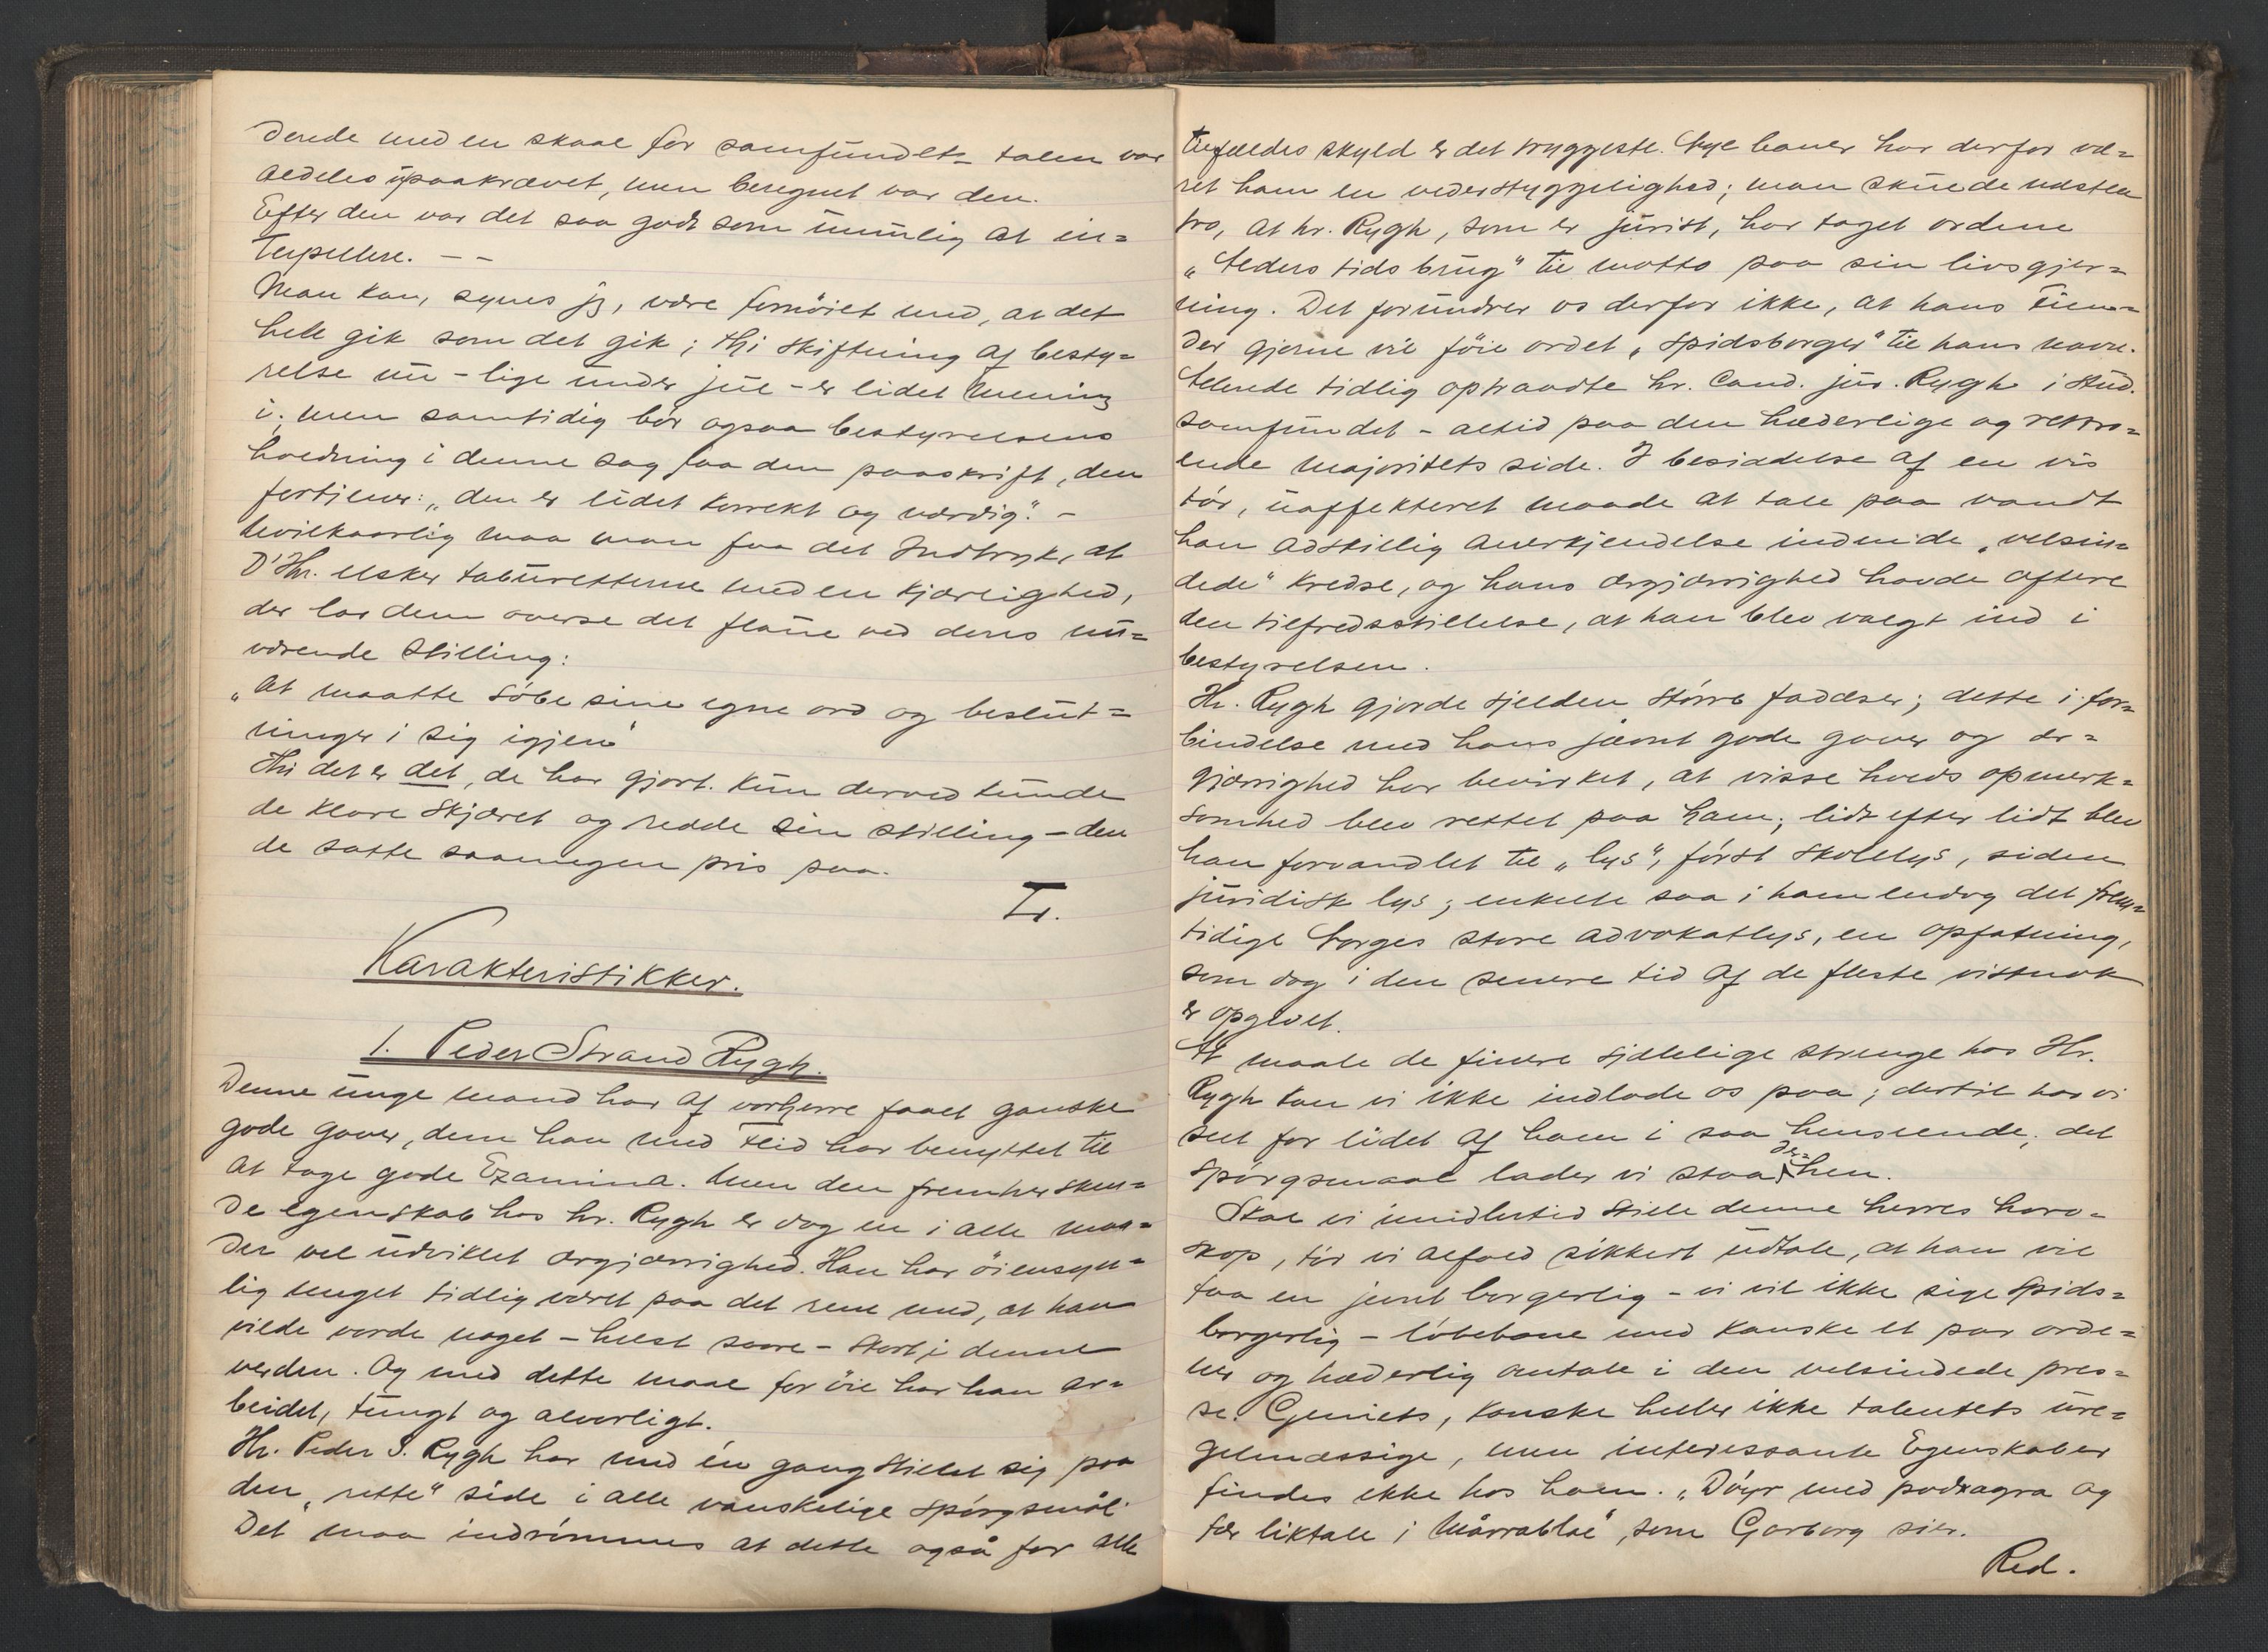 derede med en skaal for samfundet – talen var
aldeles upaakrævet, men beregnet var den.
Efter den var det saa godt som umulig at in=
terpellere. – –
Man kan, synes jeg, være fornöiet med, at det
hele gik som det gik; thi skiftning af besty=
relse nu – lige under jul – er lidet mening
i; men samtidig bör ogsaa bestyrelsens
holdning i denne sag faa den paaskrift, den
fortjener: „den er lidet korrekt og værdig“. –
Uvilkaarlig maa man faa det Indtryk, at
D'Hrr. elsker taburetterne med en kjærlighed,
der lar dem overse det flaue ved deres nu=
værende Stilling:
„At maatte söbe sine egne ord og beslut=
ninger i sig igjen“
Thi det er det, de har gjort. Kun derved kunde
de klare Skjæret og redde sin stilling – den
de satte saamegen pris paa.
Tr.
Karakteristikker.
1. Peder Strand Rygh.
Denne unge mand har af vorherre faaet ganske
gode gaver, dem han med Flid har benyttet til
at tage gode Examina. Men den fremhersken=
de egenskab hos hr. Rygh er dog en i alle maa=
der vel udviklet ærgjærrighed. Han har öiensyn=
lig meget tidlig været paa det rene med, at han
vilde vorde noget – helst saare – stort i denne
verden. Og med dette maal for öie har han ar=
beidet, tungt og alvorligt.
Hr. Peder S. Rygh har med én gang stillet sig paa
den „rette“ side i alle vanskelige spörgsmål.
Det maa indrömmes at dette også for alle
tilfældes skyld er det tryggeste. Nye baner har derfor væ=
ret ham en vederstyggelighed; man skulde næsten
tro, at hr. Rygh, som er jurist, har taget ordene
„Alders tids brug“ til motto paa sin livsgjer=
ning. Det forundrer os derfor ikke, at hans Fien=
der gjerne vil föie ordet „Spidsborger“ til hans navn.
Allerede tidlig optraadte hr. Cand. jur. Rygh i Stud.
samfundet – altid paa den hæderlige og rettro=
ende majoritets side. I besiddelse af en vis
tör, uaffekteret maade at tale paa vandt
han adskillig anerkjendelse inden de „velsin=
dede“ kredse, og hans ærgjærrighed havde oftere
den tilfredsstillelse, at han blev valgt ind i
bestyrelsen.
Hr. Rygh gjorde sjelden större fadæser; dette i for=
bindelse med hans jævnt gode gaver og ær=
gjærrighed har bevirket, at visse holds opmerk=
somhed blev rettet paa ham; lidt efter lidt blev
han forvandlet til „lys“, först skolelys, siden
juridisk lys; enkelte saa i ham endog det frem=
tidige Norges store advokatlys, en opfatning,
som dog i den senere tid af de fleste vistnok
er opgivet.
At maale de finere sjælelige strenge hos Hr.
Rygh kan vi ikke indlade os paa; dertil har vi
seet for lidet af ham i saa henseende; det
Spörgsmaal lader vi staa der=hen.
Skal vi imidlertid stille denne herres horo=
skop, tör vi alfald sikkert udtale, at han vil
faa en jevnt borgerlig – vi vil ikke sige spids=
borgerlig – löbebane med kanske et par orde=
ner og hæderlig omtale i den velsindede pres=
se. Geniets, kanske heller ikke talentets ure=
gelmæssige, men interessante Egenskaber
findes ikke hos ham. „Döyr med podragra og
fær liktale i Mårrablae“, som Garborg sier.
Red.